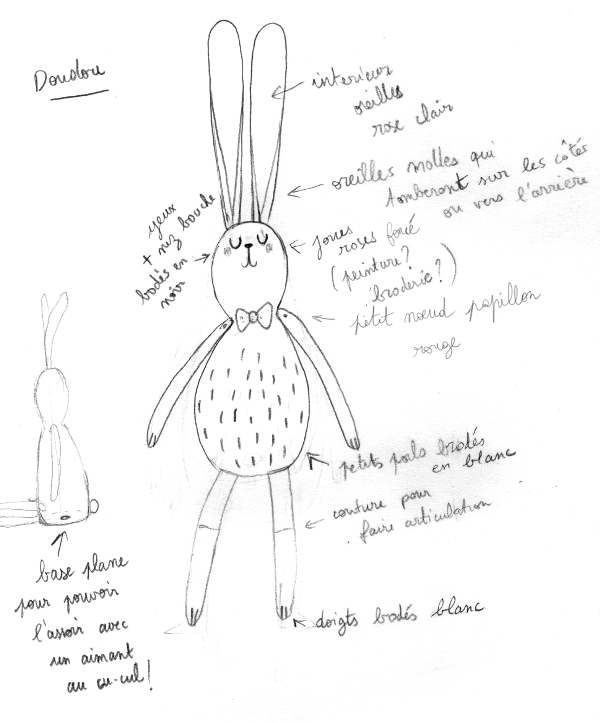 Doudou
interieur
oreilles
rose clair
oreilles molles qui
tomberont sur les côtés
ou vers l'arrière
yeux
+ nez bouche
bodés en
noir
joues
roses foncé
(peinture?
broderie?)
petit nœud papillon
rouge
petits poils brodés
en blanc
couture pour
faire articulation
doigts bodés blanc
base plane
pour pouvoir
l'assoir avec
un aimant
au cu-cul!